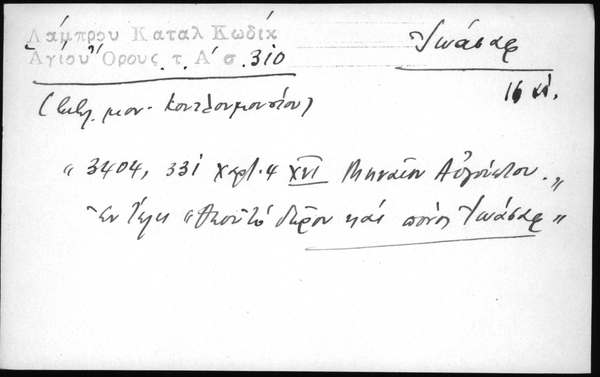 Λάμπρου Καταλ Κωδίκ
Ἁγίου Ὄρους τ. Α΄ σ. 310
Ἰωάσαφ
16 αἰ.
(βιβλ. μον. Κουτλουμουσίου)
"3404, 331 χαρτ. 4 XVI Μηναῖον Αὐγούστου."
Ἐν τέλει "Θεοῦ τὸ δῶρον καὶ πόνος Ἰωάσαφ"